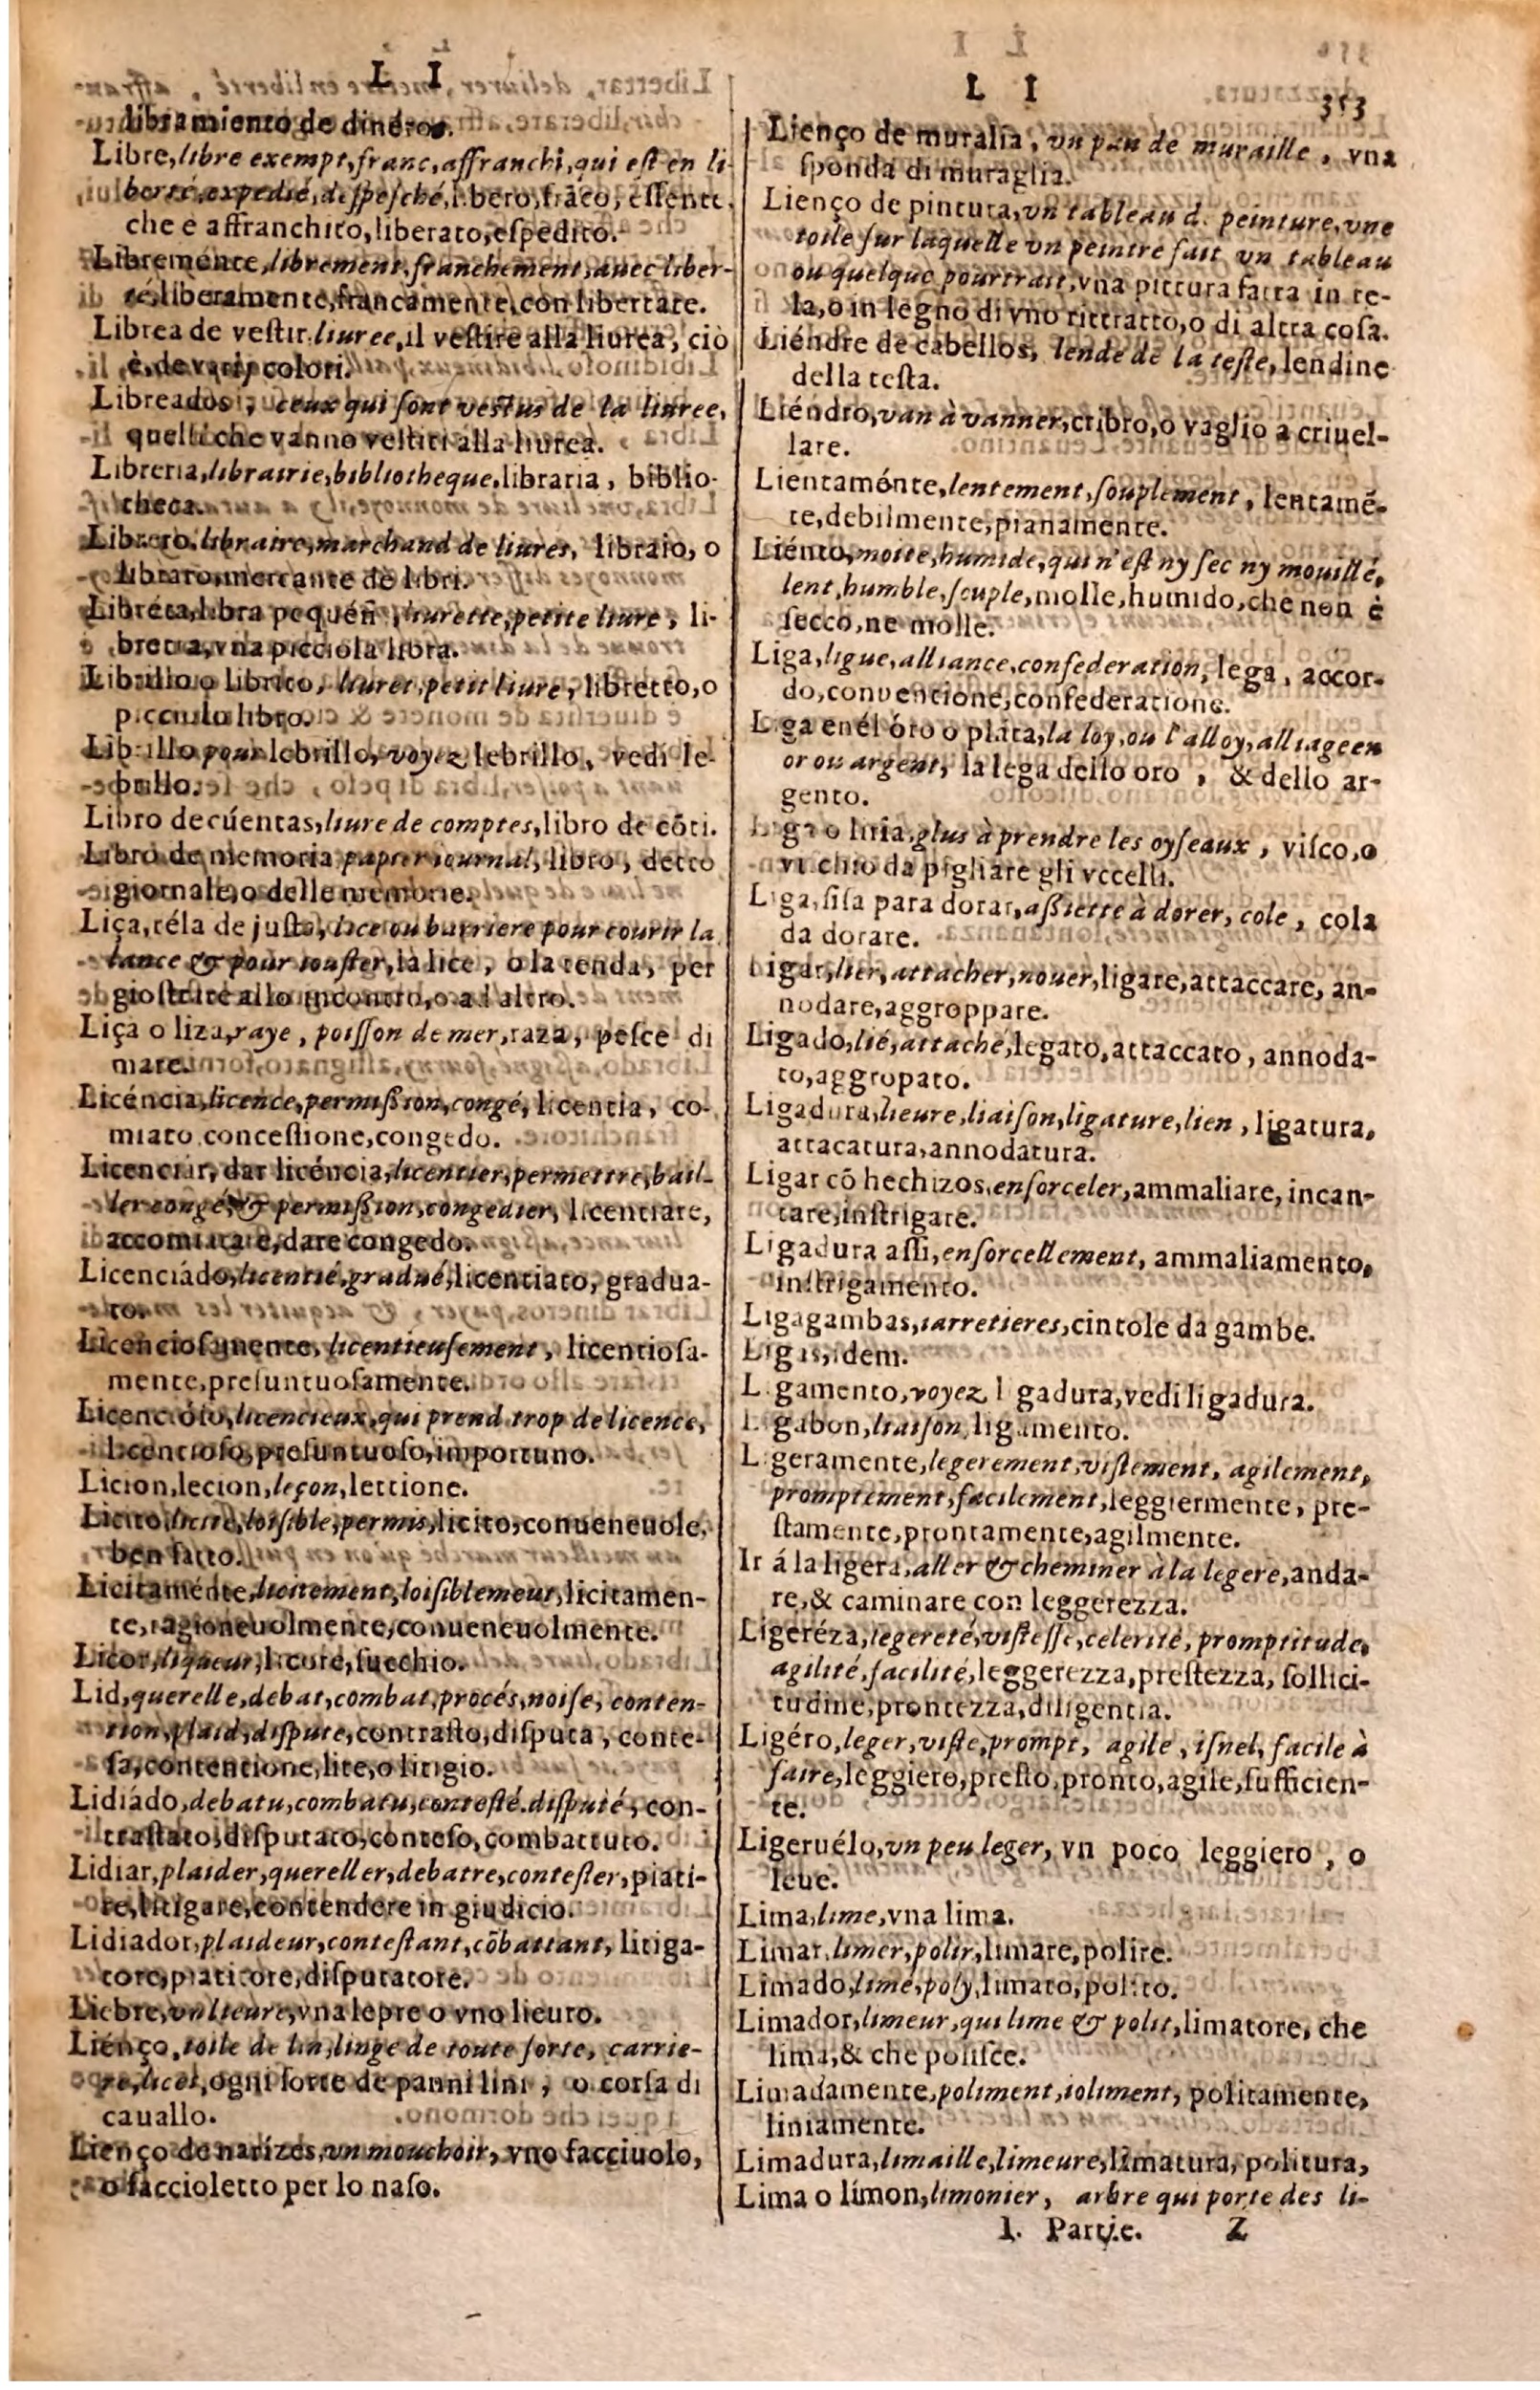 L I
libramiento de dineros.
Libre, libre exempt, franc, affranchi, qui eſt en li-
berté, expedié, deſpeſché, libero, frãco, eſſente,
che è affranchito, liberato, eſpedito.
Libreménte, librement, franchement, auec liber-
té, liberamente, francamente, con libertare.
Librea de veſtir, liuree, il veſtire alla liurea, ciò
è, de varij colori.
Libreados, ceux qui ſont veſtus de la liuree,
quelli che vanno veſtiti alla liurea.
Libreria, librairie, bibliotheque, libraria, biblio-
theca.
Librero, libraire, marchand de liures, libraio, o
libraro, mercante de libri.
Libréta, libra pequéñ, liurette, petite liure, li-
bretta, vna picciola libra.
Librillo o librico, liuret, petit liure, libretto, o
picciolo libro.
Librillo pour lebrillo, voyez lebrillo, vedi le-
brillo.
Libro decúentas, liure de comptes, libro de cõti.
Libro de memoria papier iournal, libro, detto
giornale, o delle memorie.
Liça, téla de juſta, lice ou barriere pour courir la
lance & pour iouſter, la lice, o la tenda, per
gioſtrare allo incontro, o ad altro.
Liça o liza, raye, poiſſon de mer, raza, peſce di
mare.
Licéncia, licence, permiſsion, congé, licentia, co-
miato conceſſione, congedo.
Licenciar, dar licéncia, licentier, permettre, bail-
ler congé, & permiſsion, congedier, licentiare,
accomiatare, dare congedo.
Licenciádo, licentié, gradué, licentiato, gradua-
to.
Licencioſamente, licentieuſement, licentioſa-
mente, preſuntuoſamente.
Licencióſo, licencieux, qui prend trop de licence,
licentioſo, preſuntuoſo, importuno.
Licion, lecion, leçon, lettione.
Licito, licite, loiſible, permis, licito, conueneuole,
ben fatto.
Licitaménte, licitement, loiſiblemeut, licitamen-
te, ragioneuolmente, conueneuolmente.
Licor, liqueur, licore, ſucchio.
Lid, querelle, debat, combat, procés, noiſe, conten-
tion, plaid, diſpute, contraſto, diſputa, conte-
ſa, contentione, lite, o litigio.
Lidiádo, debatu, combatu, conteſté, diſputé, con-
traſtato, diſputato, conteſo, combattuto.
Lidiar, plaider, quereller, debatre, conteſter, piati-
re, litigare, contendere in giudicio.
Lidiador, plaideur, conteſtant, cõbattant, litiga-
tore, piatitore, diſputatore.
Liebre, vn lieure, vna lepre o vno lieuro.
Liénço, toile de lin, linge de toute ſorte, carrie-
re, lice, ogni ſorte de panni lini, o corſa di
cauallo.
Lienço de narízes, vn mouchoir, vno facciuolo,
o faccioletto per lo naſo.
L I
353
Lienço de muralia, vn pan de muraille, vna
ſponda di muraglia.
Lienço de pintura, vn tableau d. peinture, vne
toile ſur laquelle vn peintre fait vn tableau
ou quelque pourtrait, vna pittura fatta in te-
la, o in legno di vno rittratto, o di altra coſa.
Liéndre de cabellos, lende de la teſte, lendine
della teſta.
Liéndro, van à vanner, cribro, o vaglio a criuel-
lare.
Lientaménte, lentement, ſouplement, lentamẽ-
te, debilmente, pianamente.
Liénto, moite, humide, qui n'eſt ny ſec ny mouillé,
lent, humble, ſouple, molle, humido, che non è
ſecco, ne molle.
Liga, ligue, alliance, confederation, lega, accor-
do, conuentione, confederatione.
Liga enél óro o pláta, la loy, ou l'alloy, alliage en
or ou argent, la lega dello oro, & dello ar-
gento.
Liga o liria, glus à prendre les oyſeaux, viſco, o
viſchio da pigliare gli vccelli.
Liga, ſiſa para dorar, aſsiette à dorer, cole, cola
da dorare.
Ligar, lier, attacher, nouer, ligare, attaccare, an-
nodare, aggroppare.
Ligado, lié, attaché, legato, attaccato, annoda-
to, aggropato.
Ligadura, lieure, liaiſon, ligature, lien, ligatura,
attacatura, annodatura.
Ligar cõ hechizos, enſorceler, ammaliare, incan-
tare, inſtrigare.
Ligadura aſſi, enſorcellement, ammaliamento,
inſtrigamento.
Ligagambas, iarretieres, cintole da gambe.
Ligas, idem.
Ligamento, voyez ligadura, vedi ligadura.
Ligabon, liaiſon, ligamento.
Ligeramente, legerement, viſtement, agilement,
promptement, facilement, leggiermente, pre-
ſtamente, prontamente, agilmente.
Ir á la ligera, aller & cheminer à la legere, anda-
re, & caminare con leggerezza.
Ligeréza, legereté, viſteſſe, celerité, promptitude,
agilité, facilité, leggerezza, preſtezza, ſollici-
tudine, prontezza, diligentia.
Ligéro, leger, viſte, prompt, agile, iſnel, facile à
faire, leggiero, preſto, pronto, agile, ſufficien-
te.
Ligeruélo, vn peu leger, vn poco leggiero, o
leue.
Lima, lime, vna lima.
Limar, limer, polir, limare, polire.
Limado, limé, poly, limato, polito.
Limador, limeur, qui lime & polit, limatore, che
lima, & che poliſce.
Limadamente, poliment, ioliment, politamente,
limamente.
Limadura, limaille, limeure, limatura, politura,
Lima o límon, limonier, arbre qui porte des li-
I. Partie. Z